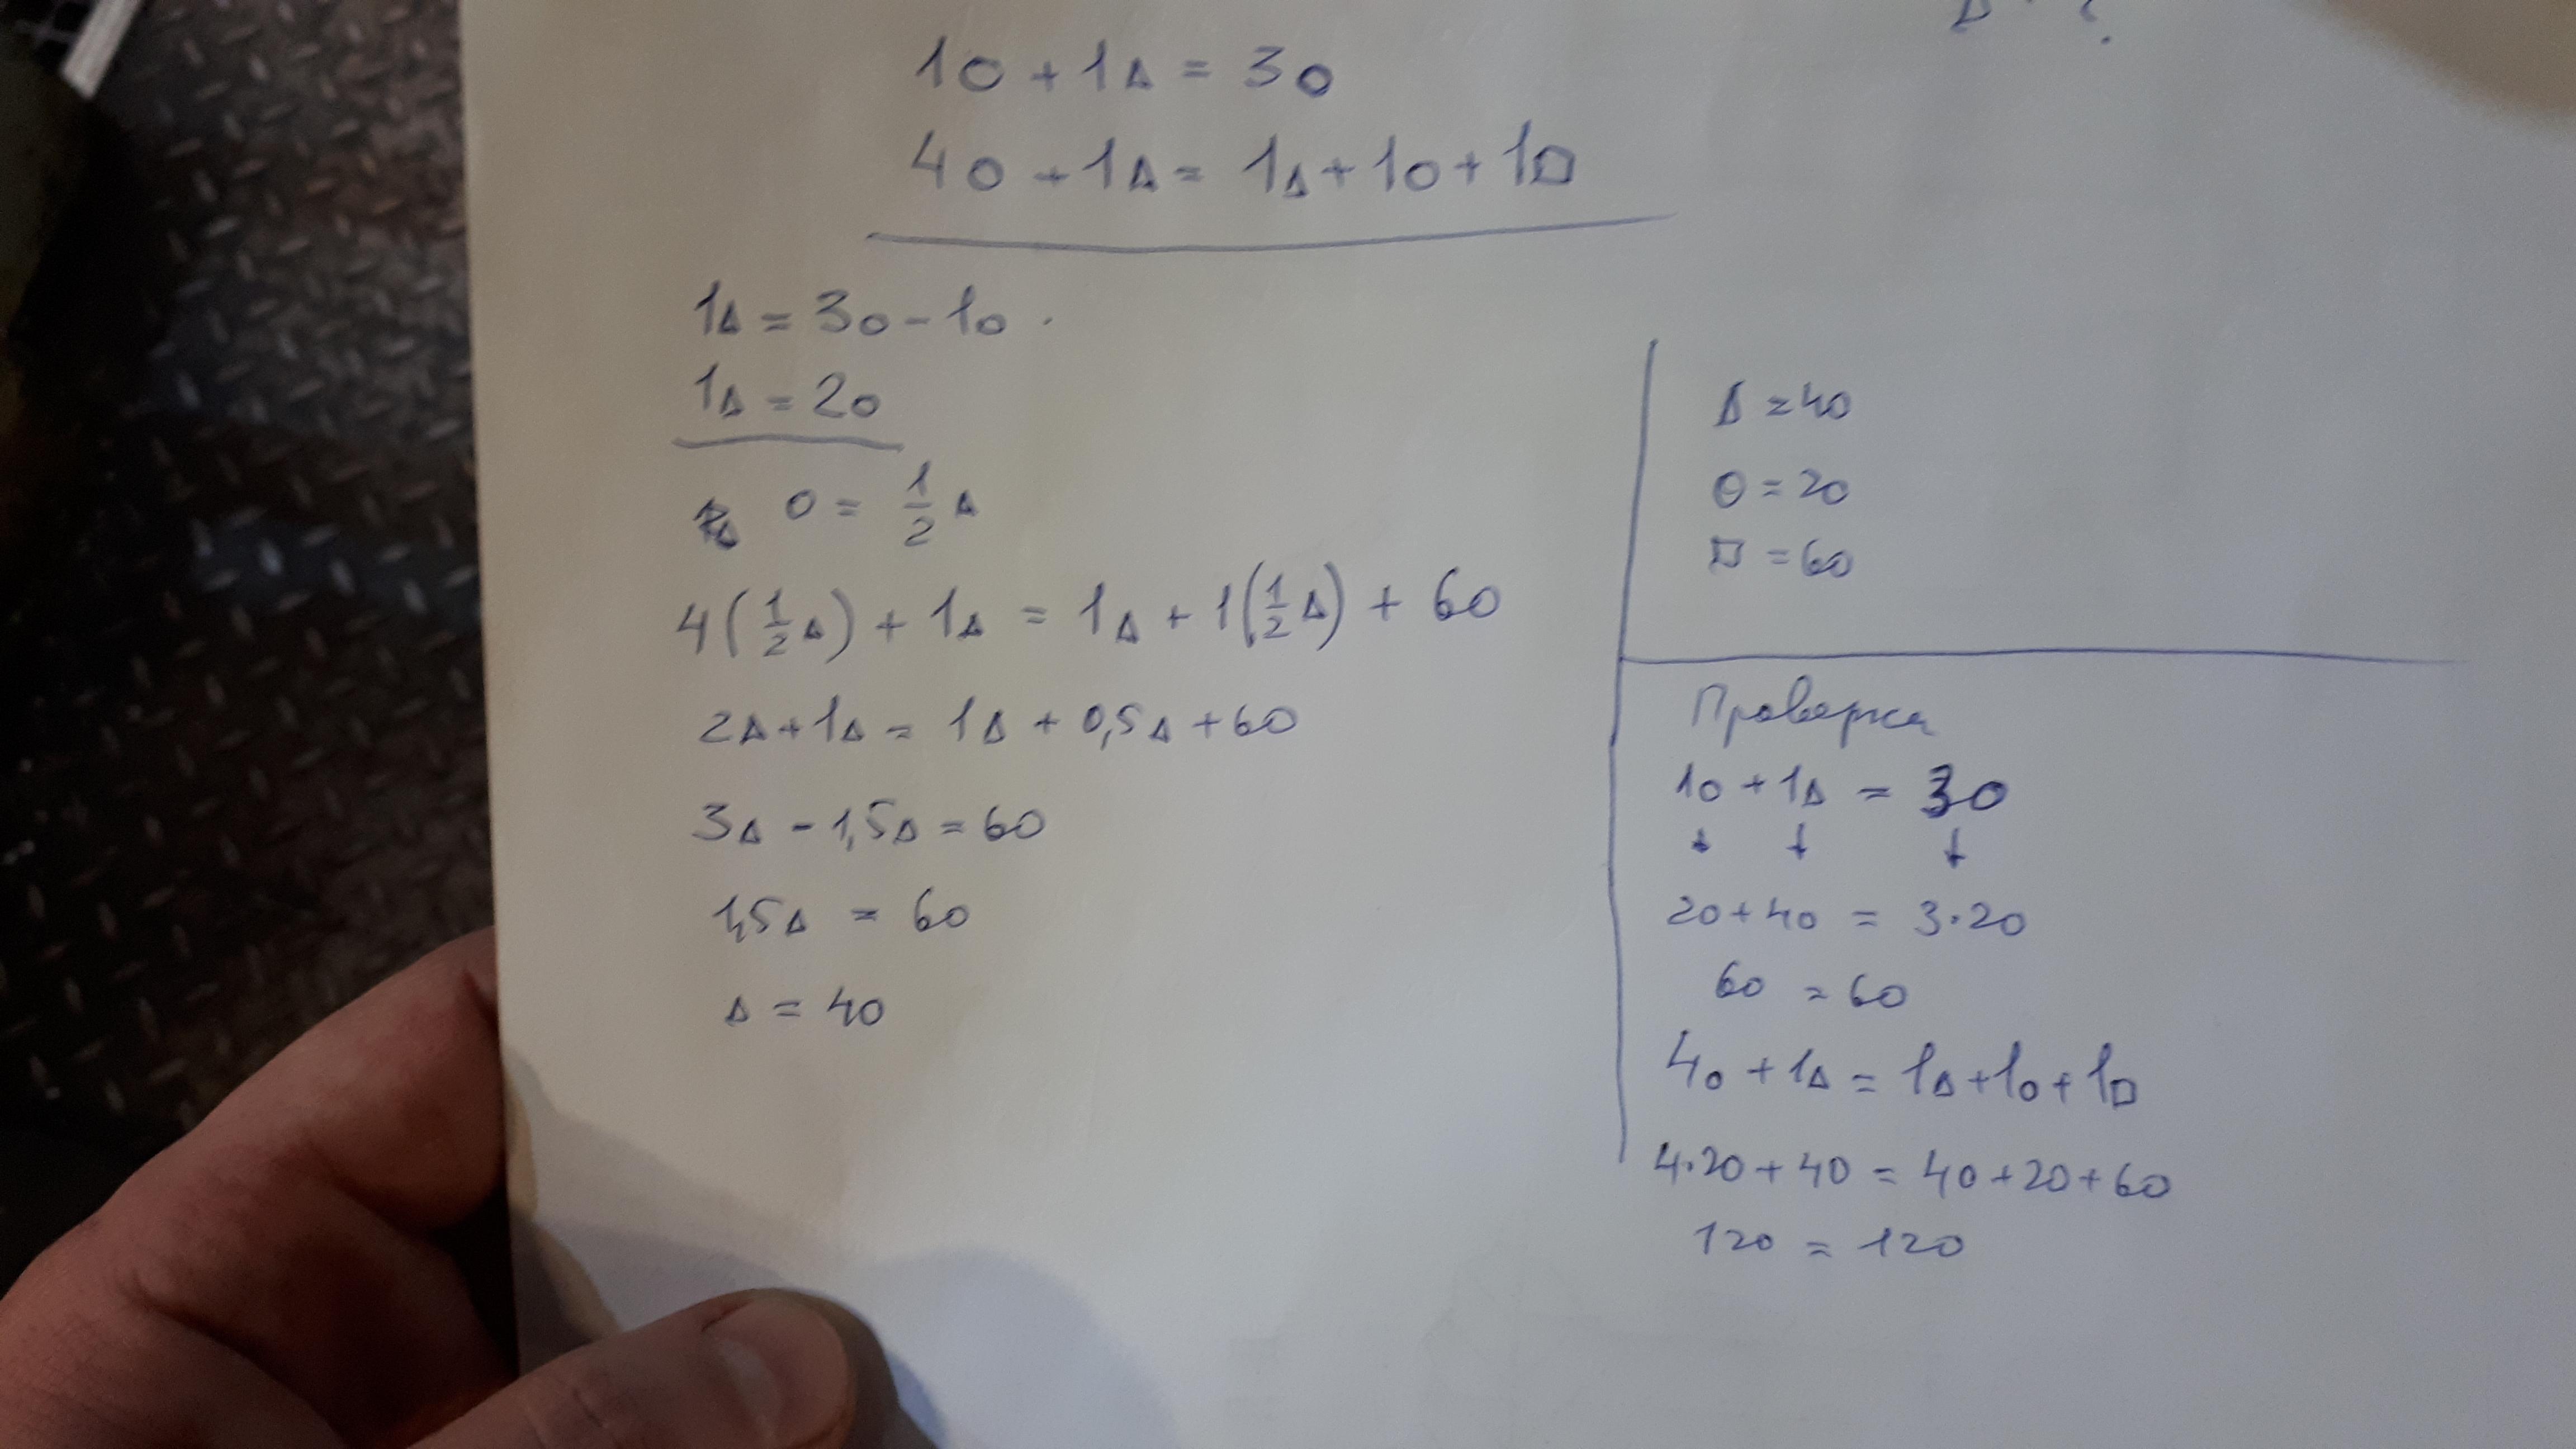 1○ + 1△ = 3○
4○ + 1△ = 1△ + 1○ + 1□
1△ = 3○ - 1○
1△ = 2○
○ = 1/2 △
4(1/2 △) + 1△ = 1△ + 1(1/2 △) + 60
2△ + 1△ = 1△ + 0,5△ + 60
3△ - 1,5△ = 60
1,5△ = 60
△ = 40
△ = 40
○ = 20
□ = 60
Проверка
1○ + 1△ = 3○
↓ ↓ ↓
20 + 40 = 3·20
60 = 60
4○ + 1△ = 1△ + 1○ + 1□
4·20 + 40 = 40 + 20 + 60
120 = 120